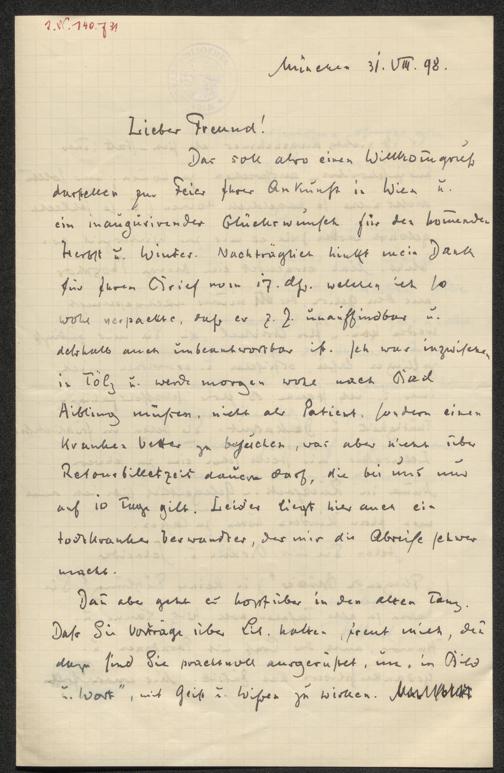 München 31. VIII. 98.
Lieber Freund!
Das soll also einen Willkom̄gruß
darstellen zur Feier Ihrer Ankunft in Wien u.
ein inaugurirender Glückswunsch für den kom̄enden
Herbst u. Winter. Nachträglich hinkt mein Dank
für Ihren Brief vom 17. ds, welchen ich so
wohl verpackte, daß er z. Z. unauffindbar u.
deshalb auch unbeantwortbar ist. Ich war inzwischen
in Tölz u. werde morgen wohl nach Bad
Aibling müssen, nicht als Patient, sondern einen
kranken Vetter zu besuchen, was aber nicht über
Retourbilletzeit dauern darf, die bei uns nur
auf 10 Tage gilt. Leider liegt hier auch ein
todtkranker Verwandter, der mir die Abreise schwer
macht.
Dan̄ aber geht es kopfüber in den alten Tanz.
Daß Sie Vorträge über Lit. halten, freut mich, den̄
dazu sind Sie prachtvoll ausgerüstet, um, in Bild
u. Wort", mit Geist u. Wissen zu wirken.